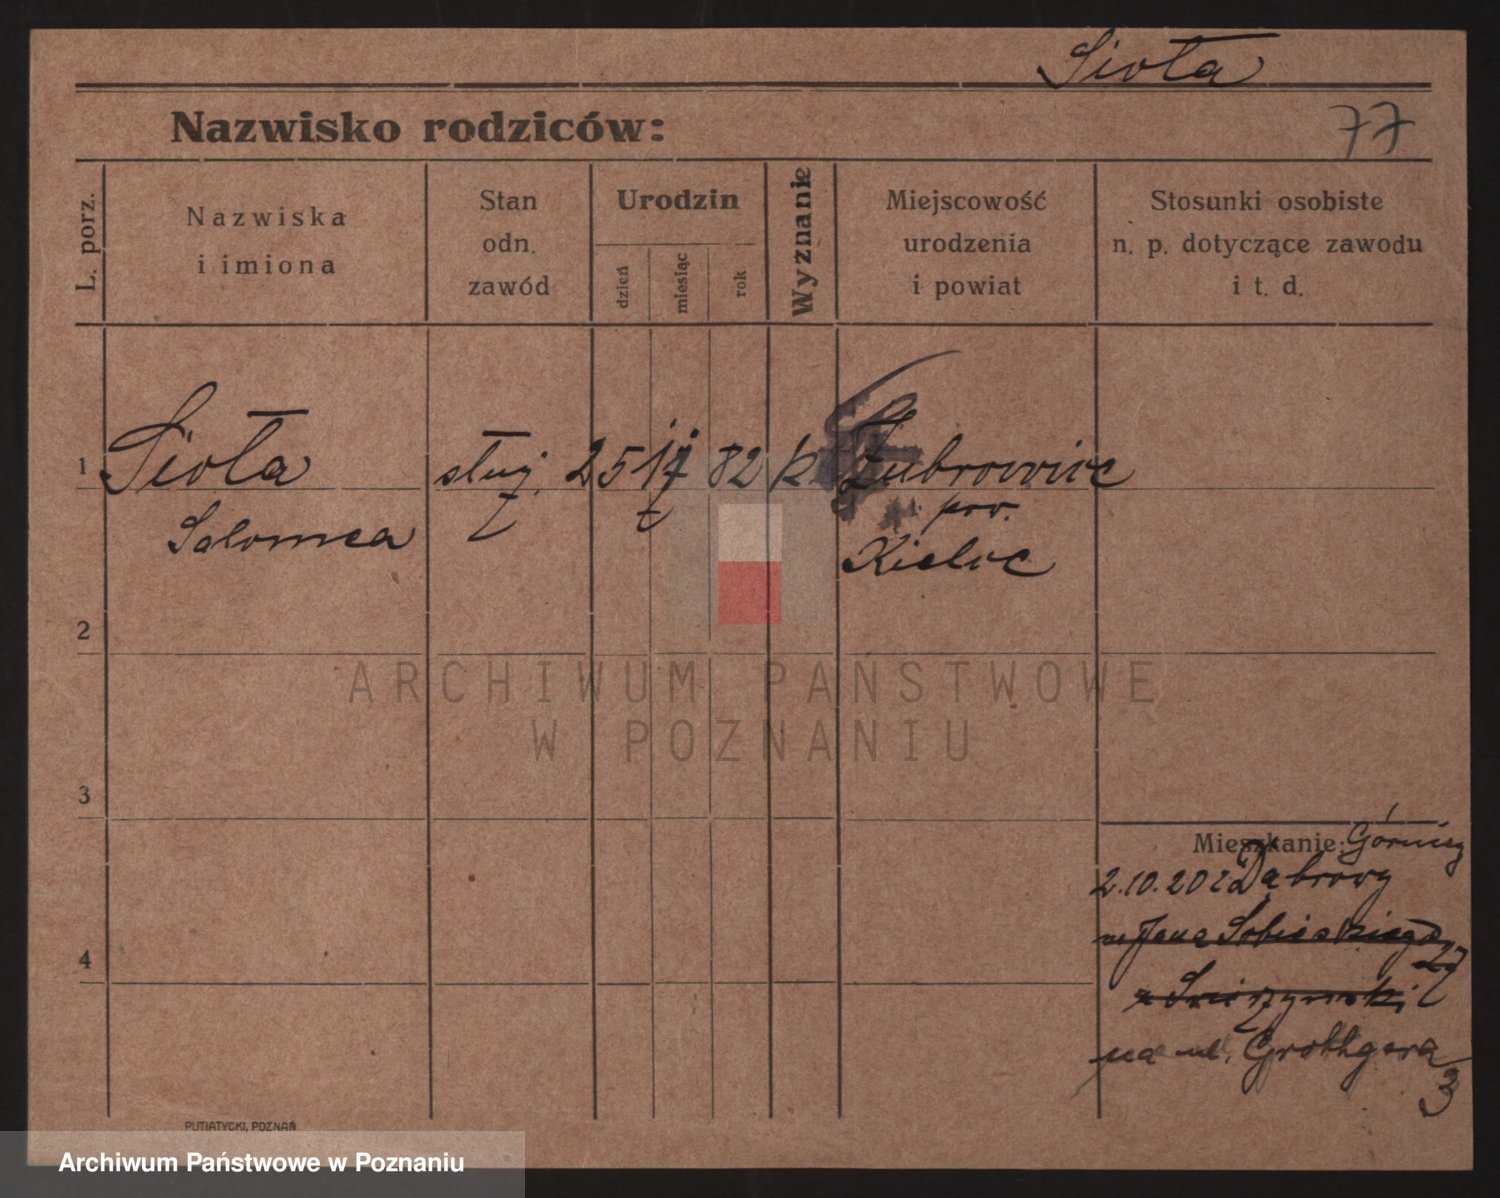 Sioła
Nazwisko rodziców:
77
L. porz.
Nazwiska
i imiona
Stan
odn.
zawód
Urodzin
dzień
miesiąc
rok
Wyznanie
Miejscowość
urodzenia
i powiat
Stosunki osobiste
n. p. dotyczące zawodu
i t. d.
1
Sioła
Salomea
służ.
25
82
k
Żubrowice
pow.
Kielce
2
3
4
Mieszkanie:
2.10.20 z Dąbrowy
Górnicz
Jana Sobieskiego
27
na ul. Grottgera
3
PUTIATYCKI, POZNAŃ
ARCHIWUM PAŃSTWOWE
W POZNANIU
Archiwum Państwowe w Poznaniu